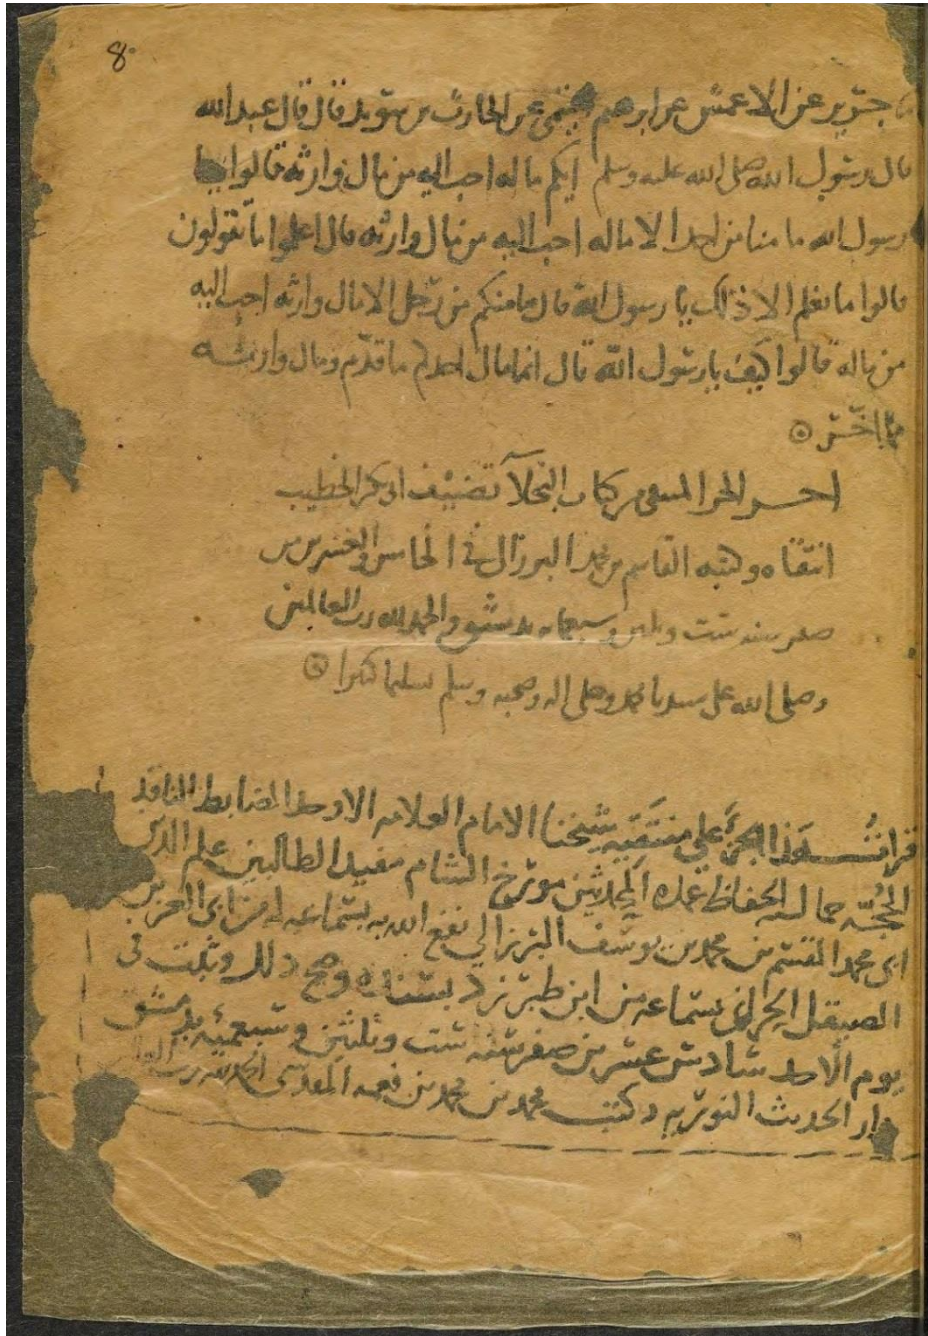 8
جرير عن الاعمش عن ابرهيم التيمي عن الحارث بن سويد قال قال عبد الله
قال رسول الله صلى الله عليه وسلم ايكم ماله احب اليه من مال وارثه قالوا يا
رسول الله ما منا من احد الا ماله احب اليه من مال وارثه قال اعلموا ما تقولون
قالوا ما نعلم الا ذلك يا رسول الله قال ما منكم من رجل الا مال وارثه احب اليه
من ماله قالوا كيف يا رسول الله قال انما مال احدكم ما قدم ومال وارثه
ما اخّر ⊙
اخر الجزء المنتقى من كتاب البخلآ تصنيف ابي بكر الخطيب
انتقاه وكتبه القاسم بن محمد البرزالي في الخامس والعشرين من
صفر سنة ست وثلثين وسبعمايه بدمشق والحمد لله رب العالمين
وصلى الله على سيدنا محمد وعلى اله وصحبه وسلم تسليما كثيرا ⊙
قرأت هذا الجزء على منتقيه شيخنا الامام العلامه الاوحد الضابط الناقد
الحجّه جمال الحفاظ عمدة المحدثين مورخ الشام مفيد الطالبين علم الدين
ابى محمد القسم بن محمد بن يوسف البرزالي نفع الله به بسماعه له من ابى العز بن
الصيقل الحراني بسماعه من ابن طبرزد بسنده وصح ذلك وثبت في
يوم الاحد سادس عشرين صفر سنة ست وثلثين وسبعمئه بدمشق
بدار الحديث النوريه وكتب محمد بن محمد بن نعمه المقدسى الحمد لله رب